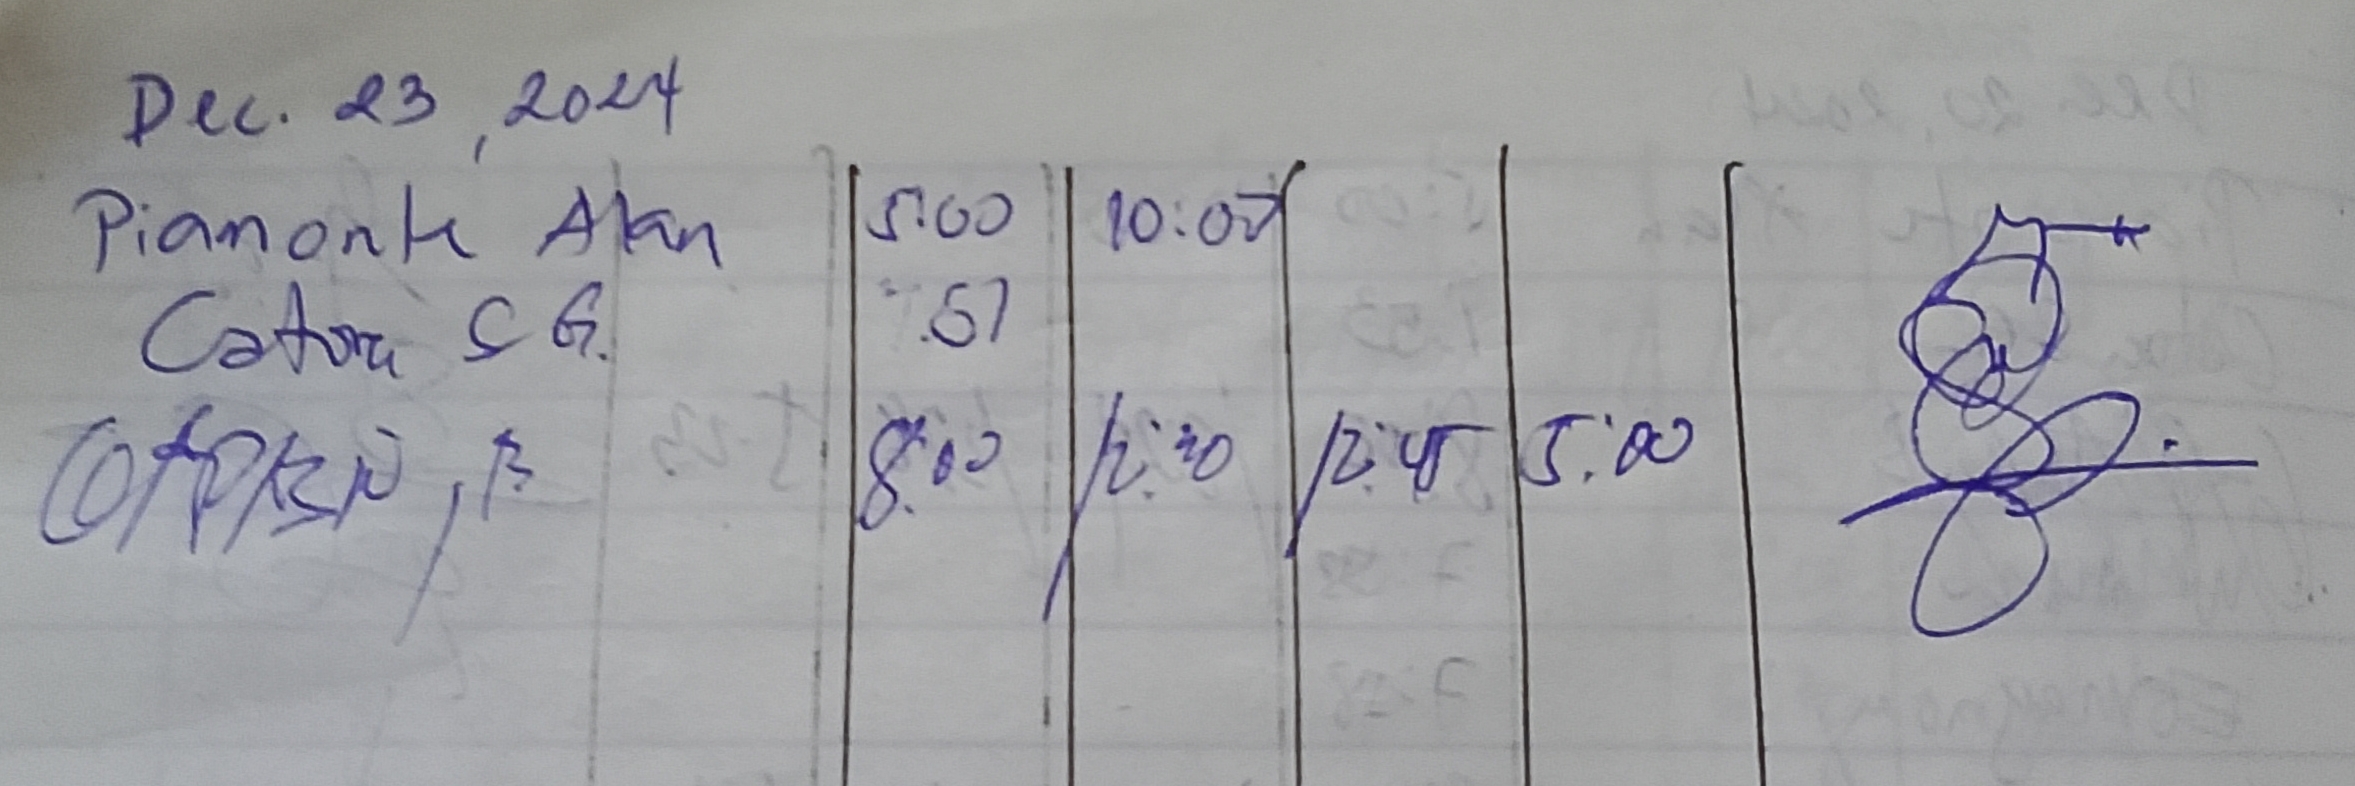 Dec. 23, 2024
Piamonte Alan 5:00 10:00
Catora S G. :51
8:00 12:30 12:45 5:00